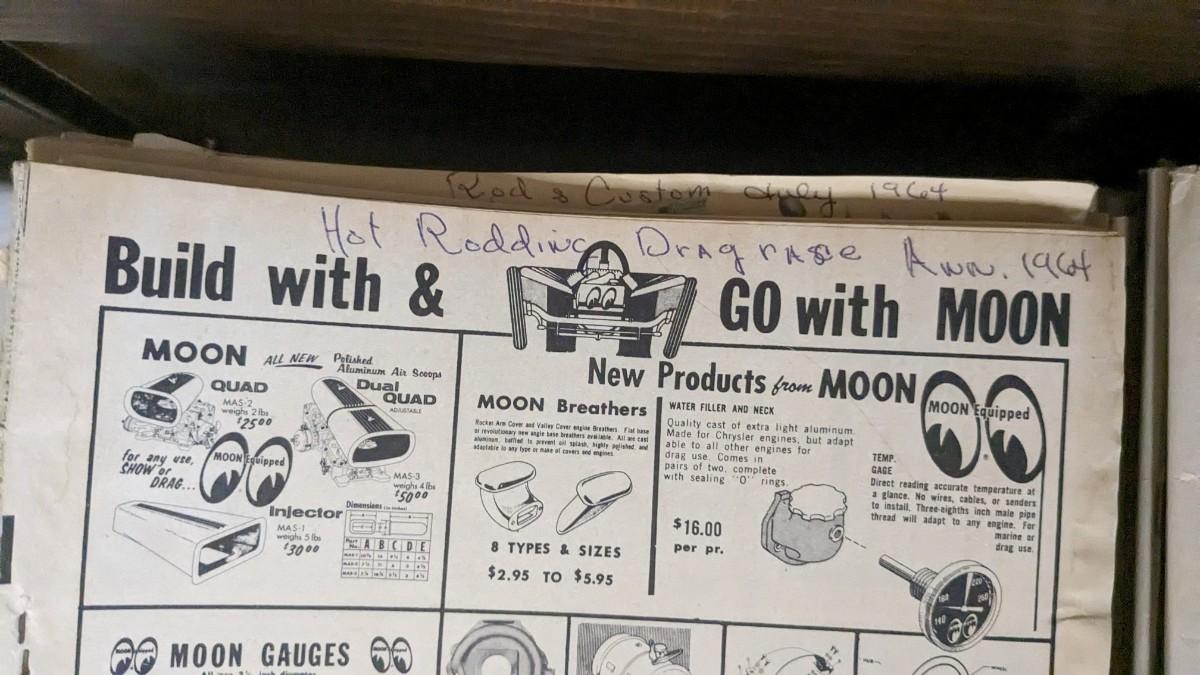 Rod & Custom July 1964
Hot Rodding Drag rase Ann. 1964
Build with & GO with MOON
MOON ALL NEW Polished
Aluminum Air Scoops
QUAD
MAS-2
weighs 2 lbs
$25.00
Dual
QUAD
ADJUSTABLE
for any use,
SHOW or
DRAG...
MOON Equipped
MAS-3
weighs 4 lbs
$50.00
Injector
MAS-1
weighs 5 lbs
$30.00
Dimensions (in inches)
Part No. A B C D E
MAS-1
MAS-2
MAS-3
New Products from MOON
MOON Breathers
Rocker Arm Cover and Valley Cover engine Breathers. Flat base
or revolutionary new angle base breathers available. All are cast
aluminum, baffled to prevent oil splash, highly polished, and
adaptable to any type or make of covers and engines.
8 TYPES & SIZES
$2.95 TO $5.95
WATER FILLER AND NECK
Quality cast of extra light aluminum.
Made for Chrysler engines, but adapt
able to all other engines for
drag use. Comes in
pairs of two, complete
with sealing "O" rings.
$16.00
per pr.
MOON Equipped
TEMP.
GAGE
Direct reading accurate temperature at
a glance. No wires, cables, or senders
to install. Three-eighths inch male pipe
thread will adapt to any engine. For
marine or
drag use.
140 180 220 260
MOON Equipped
MOON GAUGES